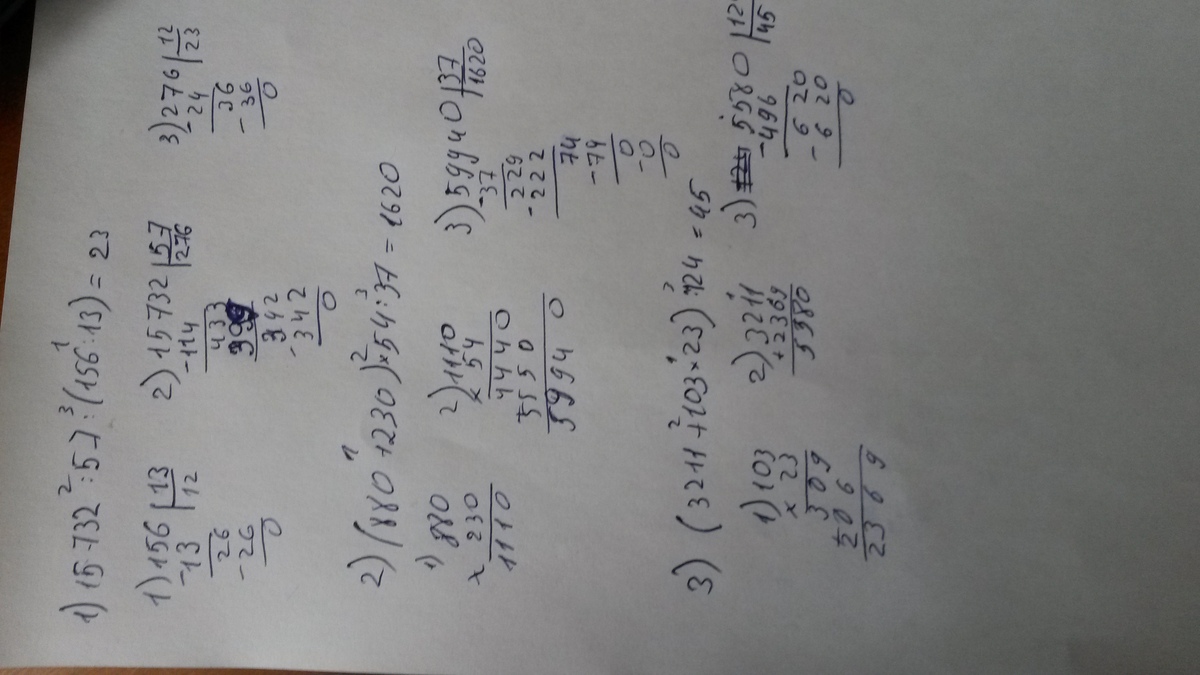 1) 15 732 : 57 : (156 : 13) = 23
2 3 1
1) 156 | 13
-13 | 12
26
- 26
0
2) 15732 | 57
-114 | 276
433
399
342
- 342
0
3) 276 | 12
- 24 | 23
36
- 36
0
2) (880 + 230) × 54 : 37 = 1620
1 2 3
1) 880
× 230
1110
2) 1110
× 54
4440
+ 5550
59940
3) 59940 | 37
-37 | 1620
229
- 222
74
-74
0
-0
0
3) (3211 + 103 × 23) : 124 = 45
2 1 3
1) 103
× 23
309
+ 206
2369
2) 3211
+ 2369
5580
3) 5580 | 12
- 496 | 45
620
- 620
0